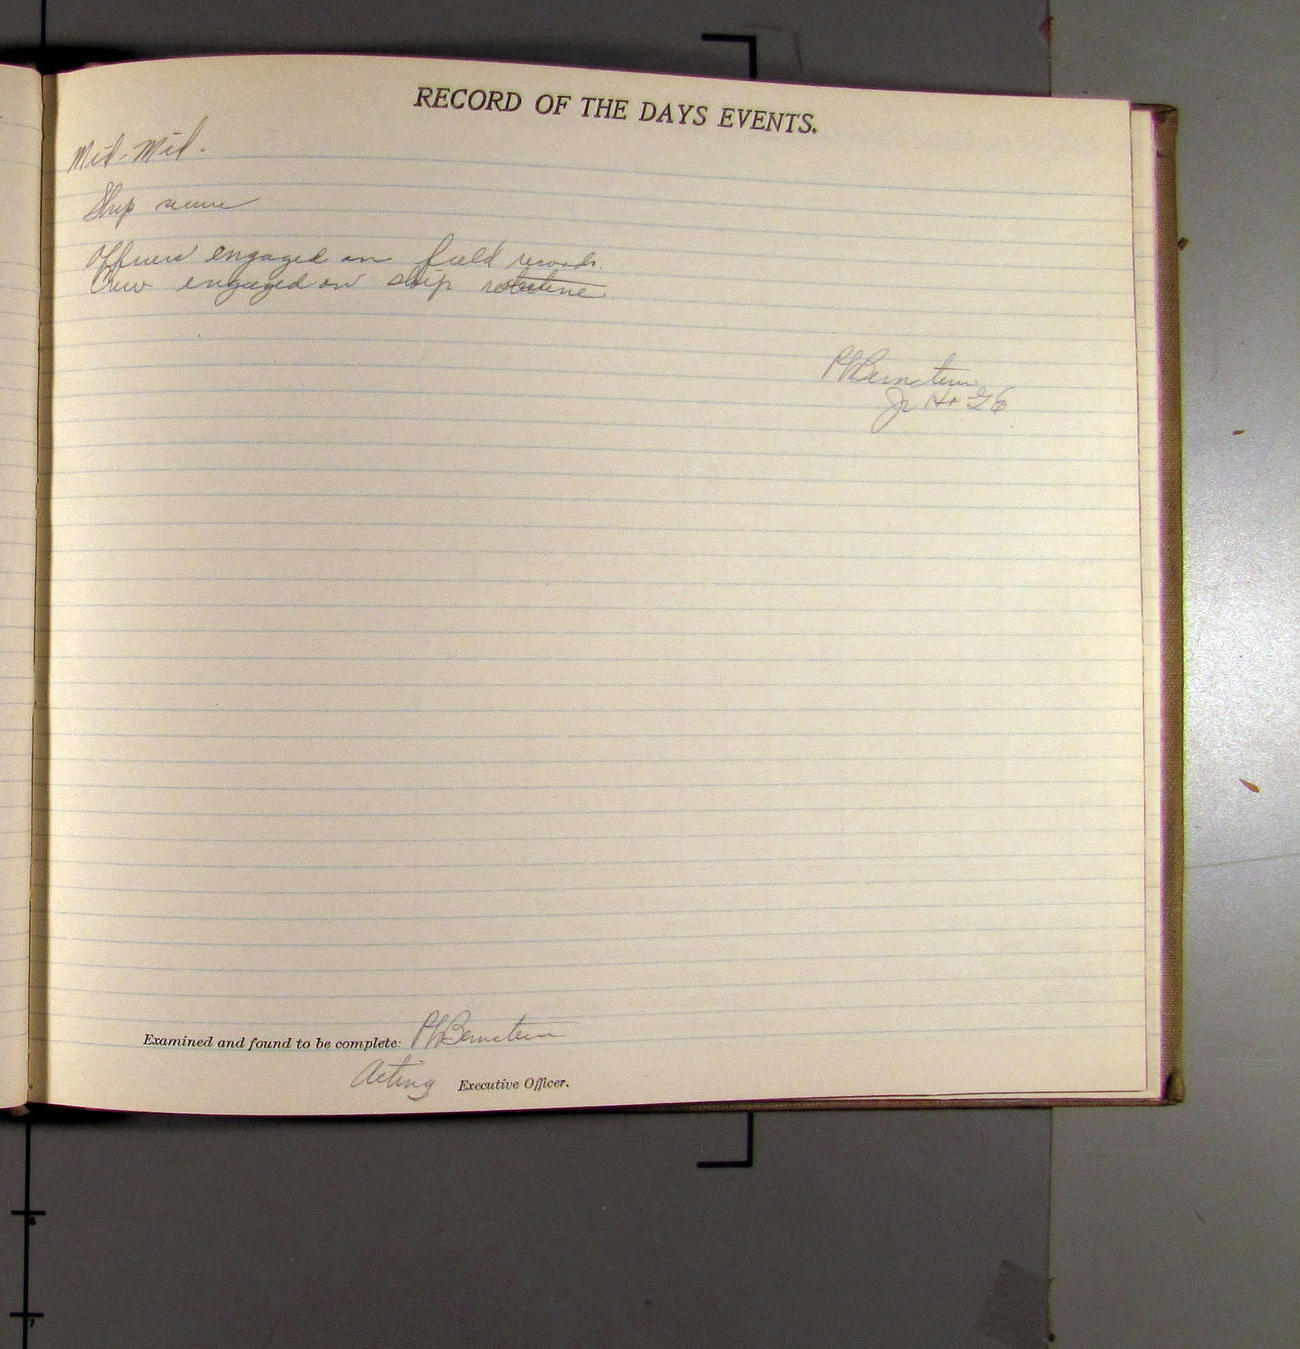 RECORD OF THE DAYS EVENTS.
Mid-Mid.
Ship
Officers engaged on field records.
Crew engaged on ship routine.
PLBernstein
Jr H+GE
Examined and found to be complete: PLBernstein
Acting Executive Officer.